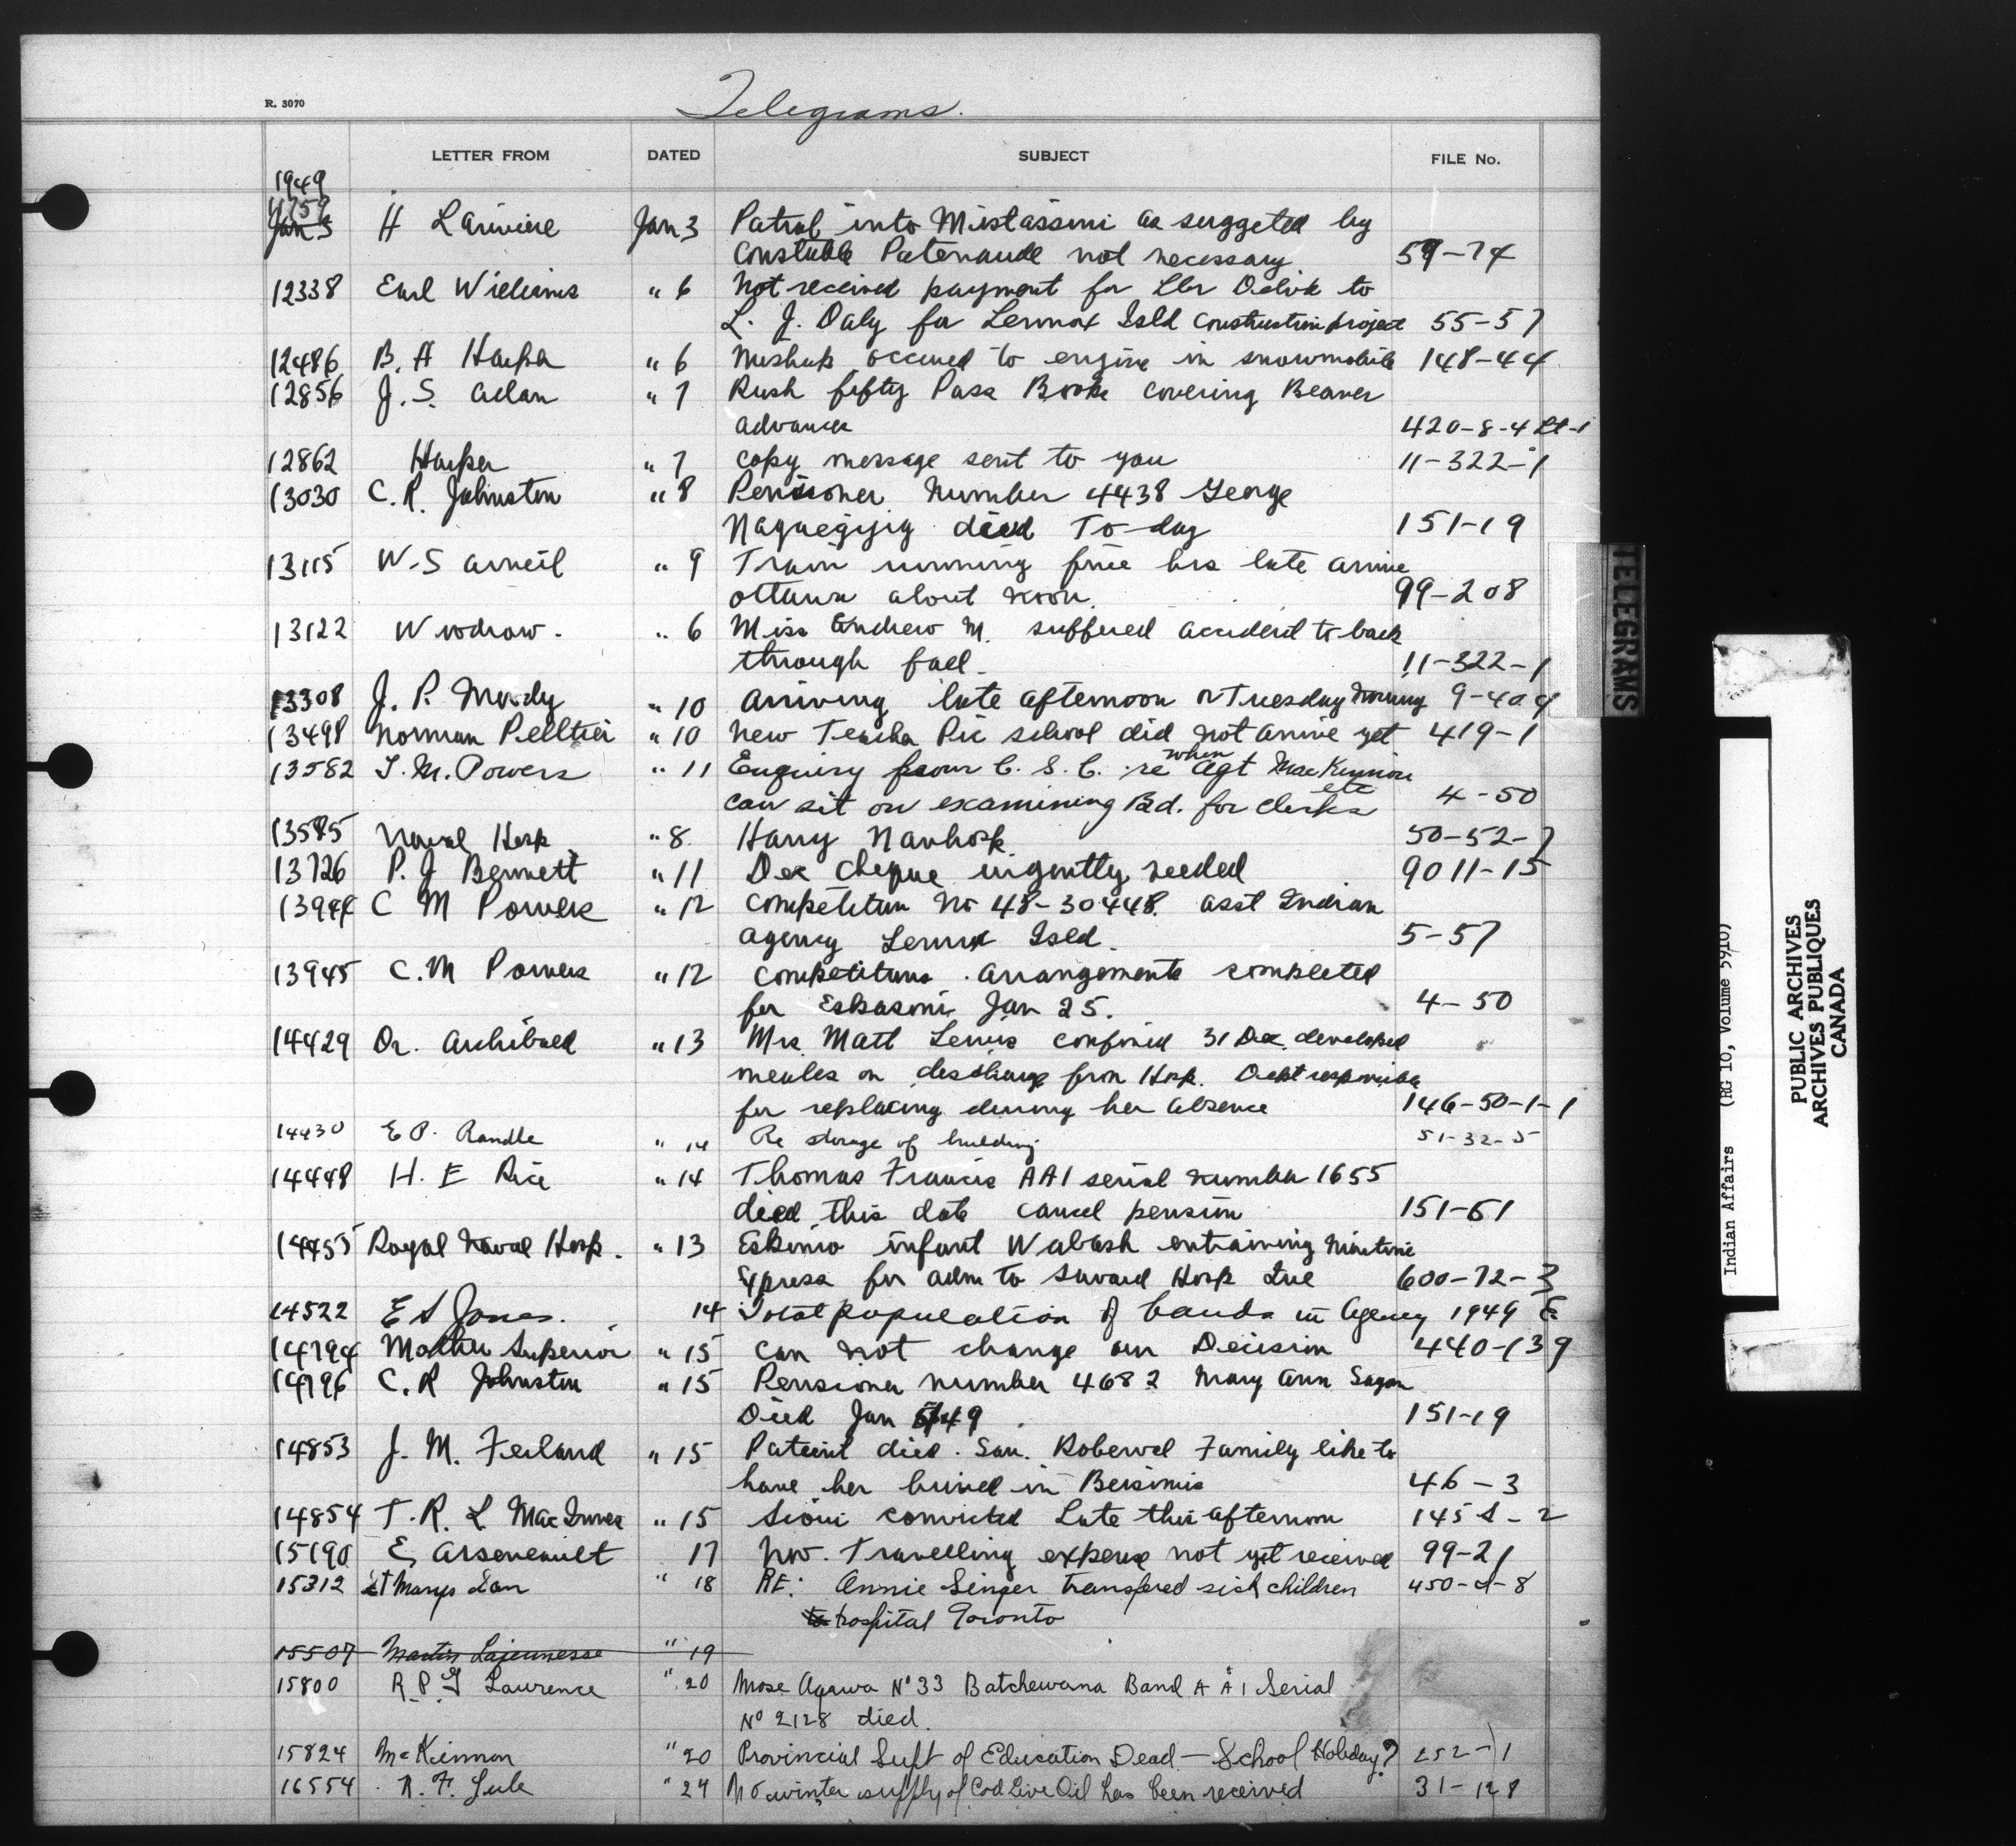 Telegrams.
R. 3070
LETTER FROM DATED SUBJECT FILE No.
1949
11759
Jan 3 H Lariviere Jan 3 Patrol into Mistassini as suggeted by
Constable Patenaude not necessary 59-74
12338 Earl Williams " 6 Not received payment for to
L. J. Daly for Lennox Isld Construction project 55-57
12486 B. A Harper " 6 Mishap occured to engine in snowmobile 148-44
12856 J. S. Allan " 7 Rush fifty Pass Books covering Beaver
advances 420-8-4 Lt-1
12862 Harper " 7 copy message sent to you 11-322-1
13030 C. R. Johnston " 8 Pensioner Number 4438 George
Naquegijig died To-day 151-19
13115 W. S Arneil " 9 Train running five hrs late arrive
Ottawa about noon. 99-208
13122 Woodrow. " 6 Miss Andrew M. suffered accident to back
through fall 11-322-1
13308 J. P. Mundy " 10 Arriving late afternoon or Tuesday morning 9-404
13498 Norman Pelltier " 10 New Teacher Pic school did not arrive yet 419-1
when
13582 J. M. Powers " 11 Enquiry from C. S. C. re Agt MacKinnon
etc
can sit on examining Bd. for clerks 4-50
13585 Naval Hosp. " 8 Harry Navhosp 50-52-7
13726 P. J Bennett " 11 Dec cheque urgently needed 9011-15
13944 C M Powers " 12 Competition No 48-30448. asst Indian
agency Lennox Isld. 5-57
13945 C. M Powers " 12 Competitions. Arrangements completed
for Eskasoni Jan 25. 4-50
14429 Dr. Archibald " 13 Mrs. Matt Lewis confined 31 Dec. developed
measles on discharge from Hosp. Dept responsible
for replacing during her absence 146-50-1-1
14430 E P. Randle " 14 Re storage of building 51-32-5
14448 H. E Rice " 14 Thomas Francis AA1 serial number 1655
died this date cancel pension 151-61
14455 Royal Naval Hosp. " 13 Eskimo infant Wabash entraining Maritime
Xpress for adm to Savard Hosp Que 600-72-3
14522 E S Jones. 14 Total population of bands in Agency 1949 E.
14794 Mother Superior " 15 Can not change our Decision 440-139
14796 C. R Johnston " 15 Pensioner number 4682 Mary Ann Sagon
Died Jan 49. 151-19
14853 J. M. Ferland " 15 Patient died. San. Roberval Family like to
have her buried in Bersimis 46-3
14854 T. R. L MacInnes " 15 Sioui convicted Late this afternoon 145 S-2
15190 E, Arseneault 17 Nov. Travelling expense not yet received 99-21
15312 St Marys San " 18 RE: Annie Singer transfered sick children 450-2-8
to hospital Toronto
15507 Martin Lajeunesse " 19
15800 R. P. G Lawrence " 20 Mose Agawa No 33 Batchewana Band A A 1 Serial
No 2128 died.
15824 McKinnon " 20 Provincial Supt of Education Dead - School Holiday? 252-1
16554 R. F. Lule " 24 No winter supply of Cod Live Oil has been received 31-128
TELEGRAMS
Indian Affairs (RG 10, Volume 5910)
PUBLIC ARCHIVES
ARCHIVES PUBLIQUES
CANADA